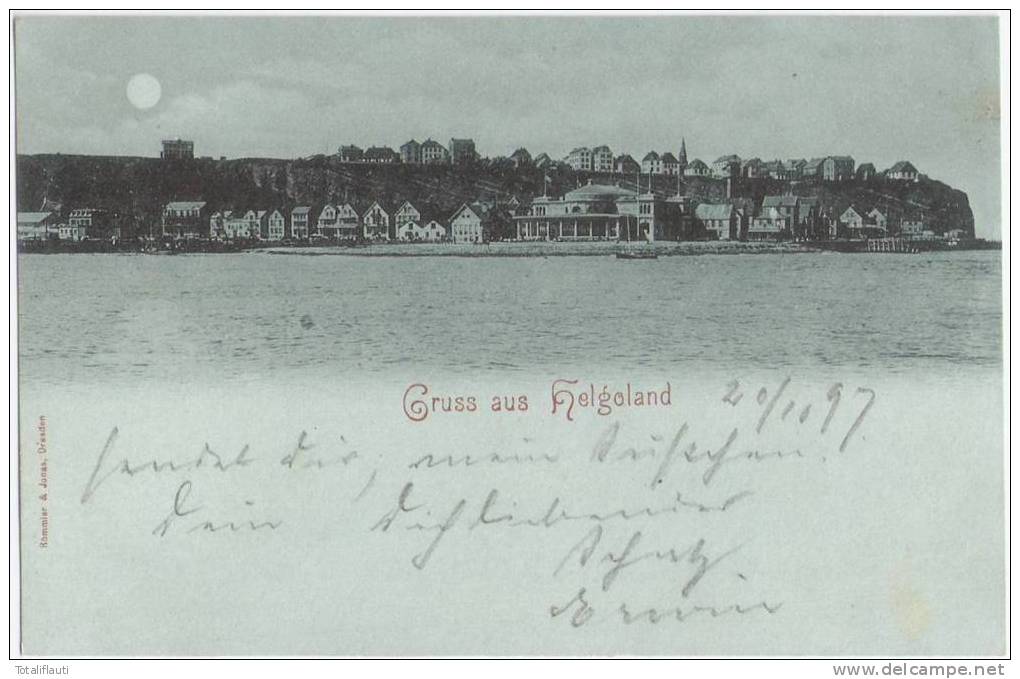 Gruss aus Helgoland 20/10 97
sendet Dir, mein
Dein Dich liebender
Schatz
Erwin
Römmler & Jonas, Dresden
Totaliflauti
www.delcampe.net